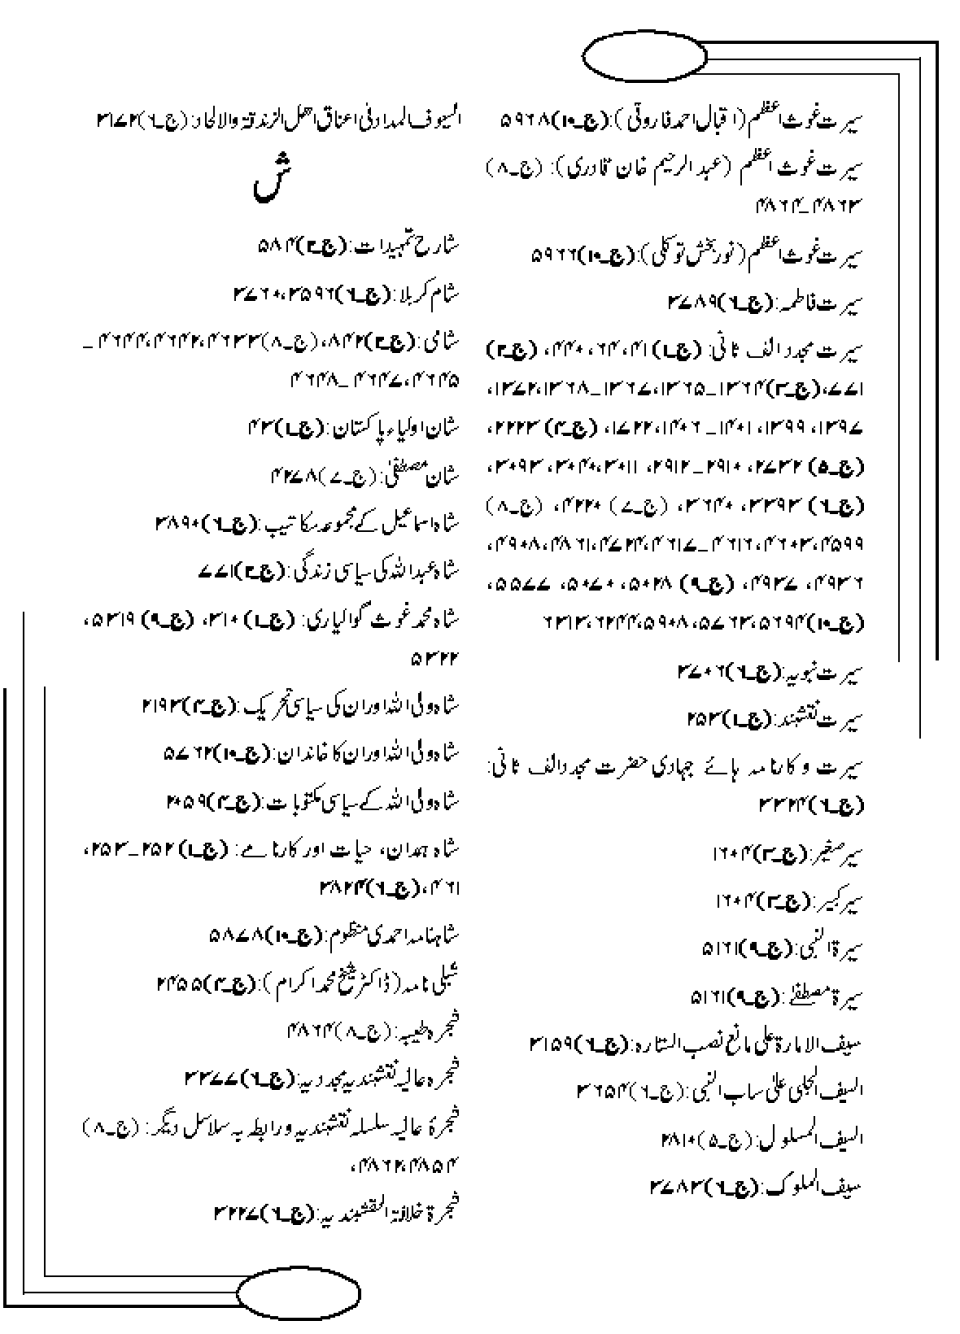 سیرت غوث اعظم (اقبال احمد فاروقی): (ج۔۱۰)۵۹۲۸
سیرت غوث اعظم (عبد الرحیم خان قادری): (ج۔۸)
۴۸۶۳۔۴۸۶۴
سیرت غوث اعظم (نور بخش توکلی): (ج۔۱۰)۵۹۲۶
سیرت فاطمہ: (ج۔۶)۳۷۸۹
سیرت مجدد الف ثانی: (ج۔۱)۴۱، ۶۴، ۴۴۰، (ج۔۲)
۷۷۱، (ج۔۳)۱۳۶۴۔۱۳۶۵، ۱۳۶۷۔۱۳۶۸، ۱۳۷۲،
۱۳۹۷، ۱۳۹۹، ۱۴۰۱۔۱۴۰۶، ۱۷۲۲، (ج۔۴)۲۲۲۳،
(ج۔۵)۲۷۳۲، ۲۹۱۰۔۲۹۱۲، ۳۰۱۱، ۳۰۴۰، ۳۰۹۳،
(ج۔۶)۳۳۹۳، ۳۶۴۰، (ج۔۷)۴۲۲۰، (ج۔۸)
۴۵۹۹، ۴۶۰۳، ۴۶۱۶۔۴۶۱۷، ۴۷۲۴، ۴۸۶۱، ۴۹۰۸،
۴۹۳۶، ۴۹۳۷، (ج۔۹)۵۰۲۸، ۵۰۷۰، ۵۵۷۷،
(ج۔۱۰)۵۶۹۴، ۵۷۶۳، ۵۹۰۸، ۶۲۴۴، ۶۳۱۳
سیرت نبویہ: (ج۔۶)۳۷۰۶
سیرت نقشبند: (ج۔۱)۲۵۳
سیرت و کارنامہ ہائے جہادی حضرت مجدد الف ثانی:
(ج۔۶)۳۳۲۴
سیر صغیر: (ج۔۳)۱۶۰۴
سیر کبیر: (ج۔۳)۱۶۰۴
سیرۃ النبی: (ج۔۹)۵۱۶۱
سیرۃ مصطفےٰ: (ج۔۹)۵۱۶۱
سیف الامارۃ علی مانع نصب الستارہ: (ج۔۶)۳۱۵۹
السیف الجلی علیٰ ساب النبی: (ج۔۶)۳۶۵۴
السیف المسلول: (ج۔۵)۲۸۱۰
سیف الملوک: (ج۔۶)۳۷۸۳
السیوف المداد فی اعناق اھل الزندقۃ والالحاد: (ج۔۶)۳۱۷۲
ش
شارح تمہیدات: (ج۔۲)۵۸۴
شام کربلا: (ج۔۶)۳۵۹۶، ۳۷۶۰
شامی: (ج۔۲)۸۴۲، (ج۔۸)۴۶۳۳، ۴۶۴۲، ۴۶۴۴۔
۴۶۴۵، ۴۶۴۷۔۴۶۴۸
شان اولیاء پاکستان: (ج۔۱)۴۳
شان مصطفیٰ: (ج۔۷)۴۲۷۸
شاہ اسماعیل کے مجموعہ مکاتیب: (ج۔۶)۳۸۹۰
شاہ عبداللہ کی سیاسی زندگی: (ج۔۲)۷۷۱
شاہ محمد غوث گوالیاری: (ج۔۱)۳۱۰، (ج۔۹)۵۳۱۹،
۵۳۲۲
شاہ ولی اللہ اور ان کی سیاسی تحریک: (ج۔۴)۲۱۹۳
شاہ ولی اللہ اور ان کا خاندان: (ج۔۱۰)۵۷۶۲
شاہ ولی اللہ کے سیاسی مکتوبات: (ج۔۴)۲۰۵۹
شاہ ہمدان، حیات اور کارنامے: (ج۔۱)۲۵۲۔۲۵۳،
۴۶۱، (ج۔۶)۳۸۲۴
شاہنامہ احمدی منظوم: (ج۔۱۰)۵۸۷۸
شبلی نامہ (ڈاکٹر شیخ محمد اکرام): (ج۔۴)۲۴۵۵
شجرہ طیبہ: (ج۔۸)۴۸۶۴
شجرہ عالیہ نقشبندیہ مجددیہ: (ج۔۶)۳۲۷۷
شجرۂ عالیہ سلسلہ نقشبندیہ و رابطہ بہ سلاسل دیگر: (ج۔۸)
۴۸۵۴، ۴۸۶۲،
شجرۃ خلافۃ النقشبندیہ: (ج۔۶)۳۲۲۷